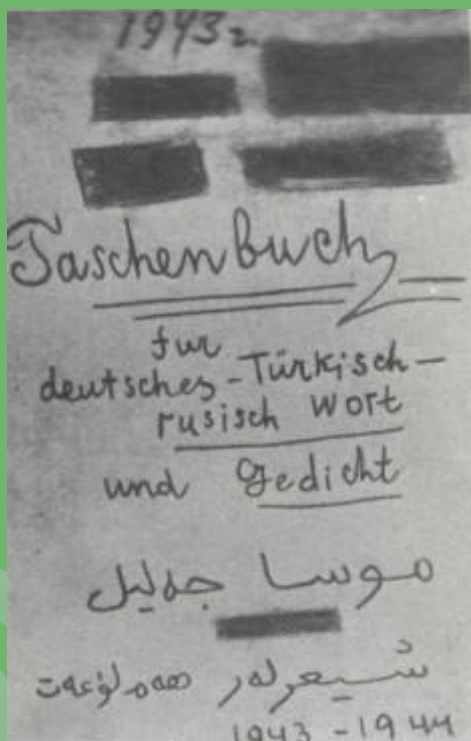 1943 г.
Taschenbuch
fur
deutsches-Türkisch-
rusisch Wort
und Gedicht
موسا جەلیل
شیعرلەر هەم لۇغەت
1943-1944